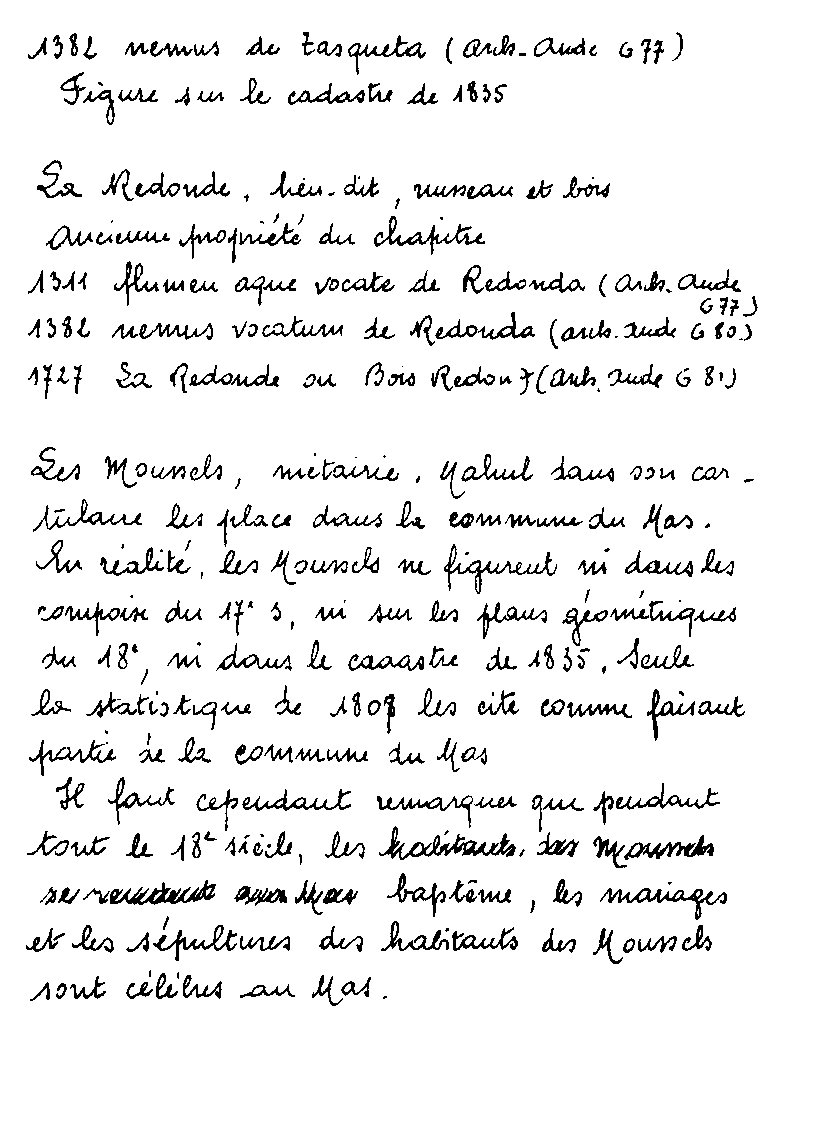 1382 nemus de tasqueta (Arch. Aude G 77)
Figure sur le cadastre de 1835
La Redonde, lieu-dit, ruisseau et bois
Ancienne propriété du chapitre
1311 flumen aque vocate de Redonda (Arch. Aude
G 77)
1382 nemus vocatum de Redonda (arch. Aude G 80)
1727 La Redonde ou Bois Redon (Arch. Aude G 81)
Les Moussels, métairie. Mahul dans son car-
tulaire les place dans la commune du Mas.
En réalité, les Moussels ne figurent ni dans les
compoix du 17e s, ni sur les plans géométriques
du 18e, ni dans le cadastre de 1835. Seule
la statistique de 1807 les cite comme faisant
partie de la commune du Mas
Il faut cependant remarquer que pendant
tout le 18e siècle, les habitants des Moussels
baptême, les mariages
et les sépultures des habitants des Moussels
sont célébrés au Mas.